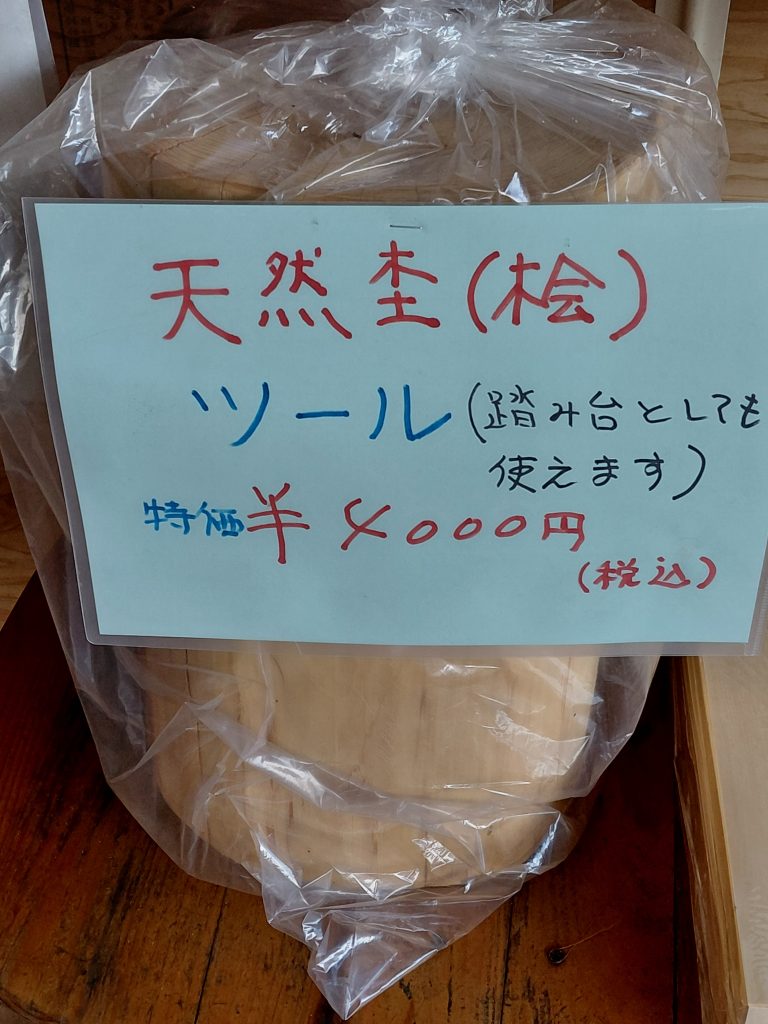 天然杢(桧)
ツール(踏み台としても
使えます)
特価半4000円
(税込)